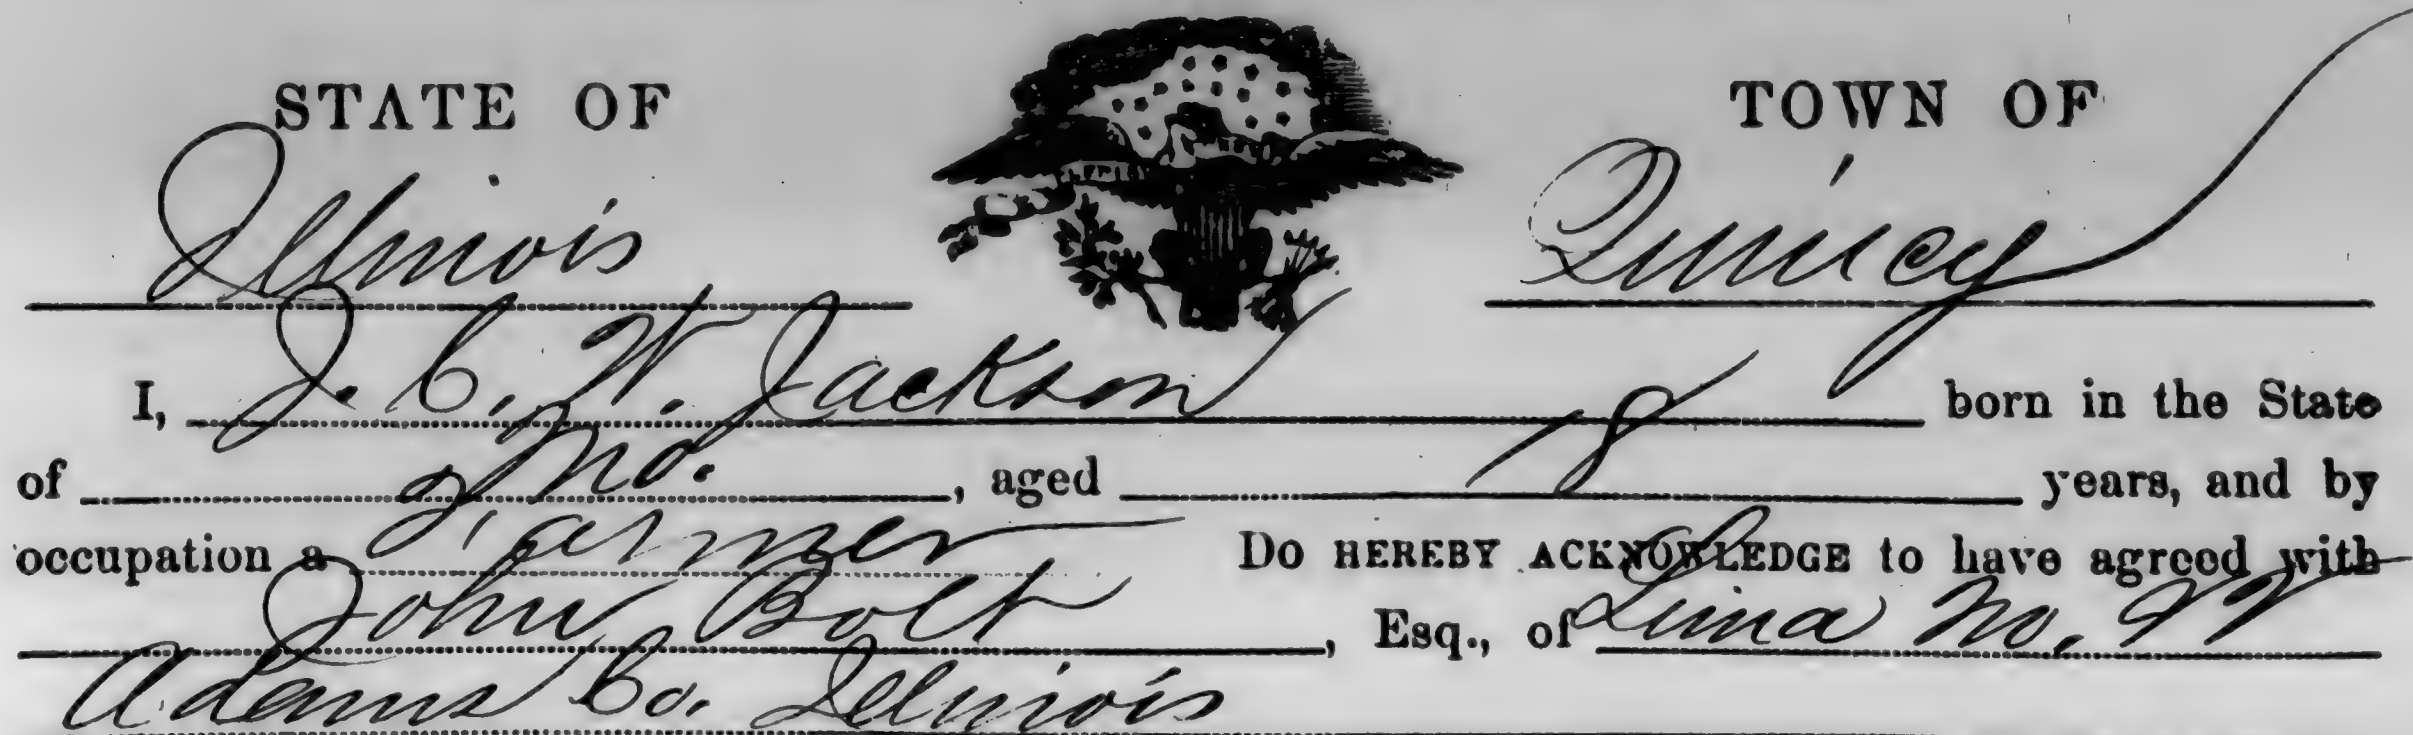 STATE OF TOWN OF
Illinois Quincy
I, J. C. W. Jackson born in the State
of Mo. , aged 18 years, and by
occupation a Farmer Do HEREBY ACKNOWLEDGE to have agreed with
John Bolt , Esq., of Lima
Adams Co. Illinois